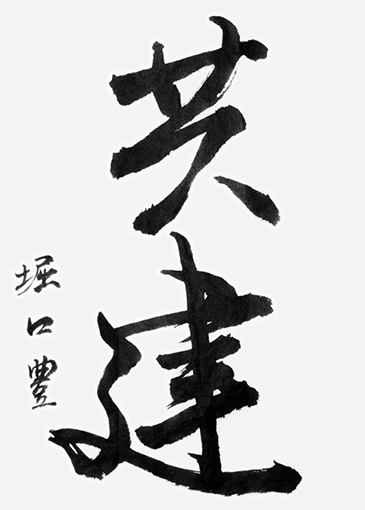 共建
堀口豊